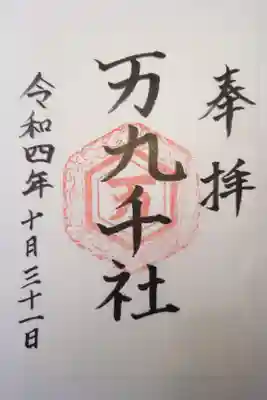 奉拝
万九千社
令和四年十月三十一日